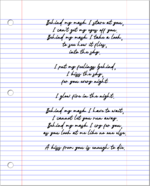 Behind my mask I stare at you,
I can't get my eyes off you.
Behind my mask I take a look,
to see how it flies,
into the sky.
I put my feelings behind,
I kiss the sky,
for you every night.
I glow fire in the night.
Behind my mask I have to wait,
I cannot let you run away.
Behind my mask I cry for you,
as you look at me like no one else.
A kiss from you is enough to die.